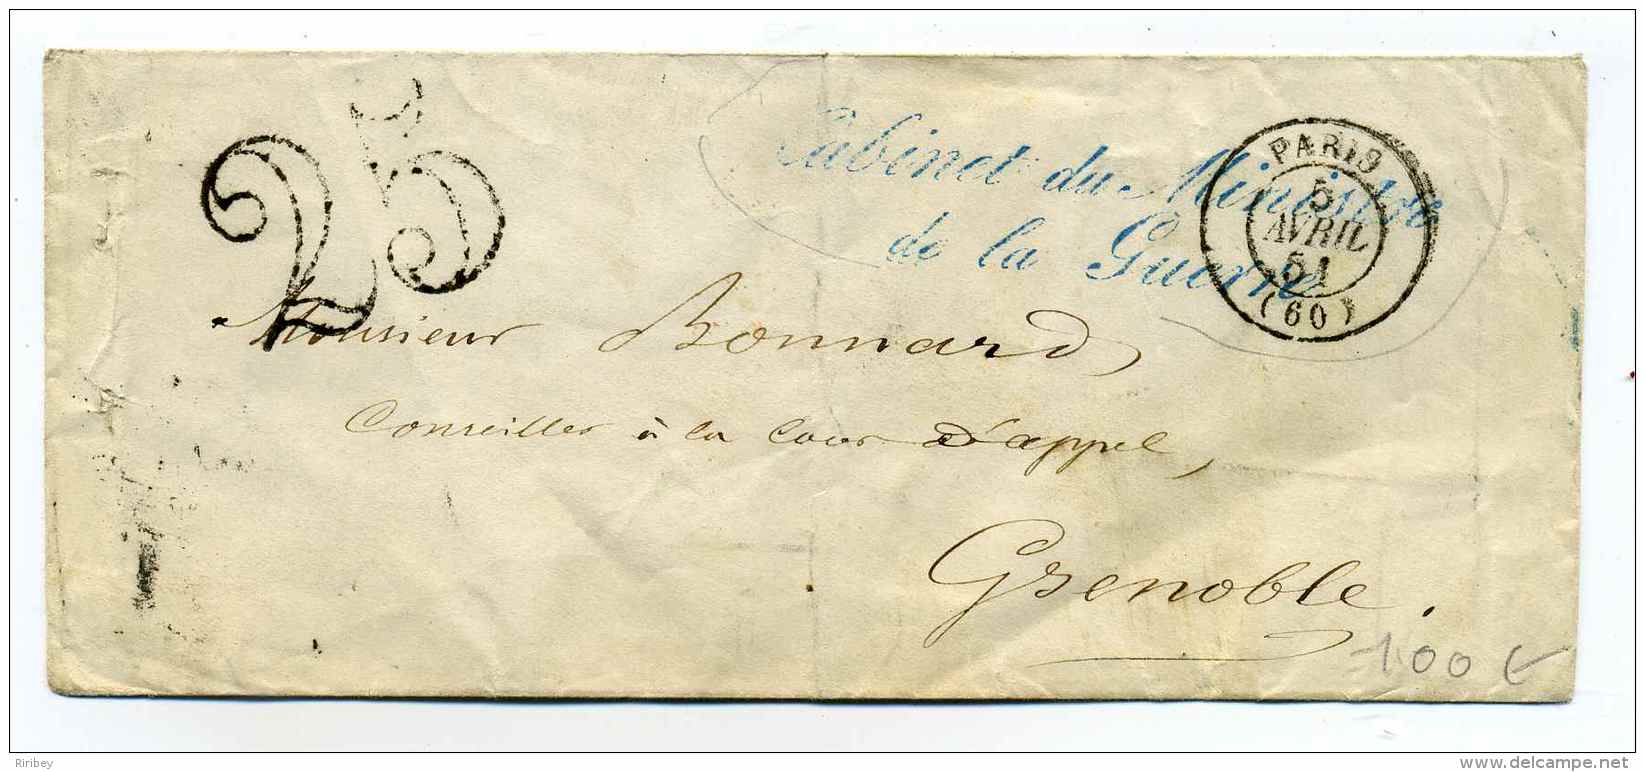 25
Cabinet du Ministre
de la Guerre
PARIS
5
AVRIL
51
(60)
Monsieur Bonnard,
Conseiller à la Cour d'appel,
Grenoble.
100 €
Riribey
www.delcampe.net